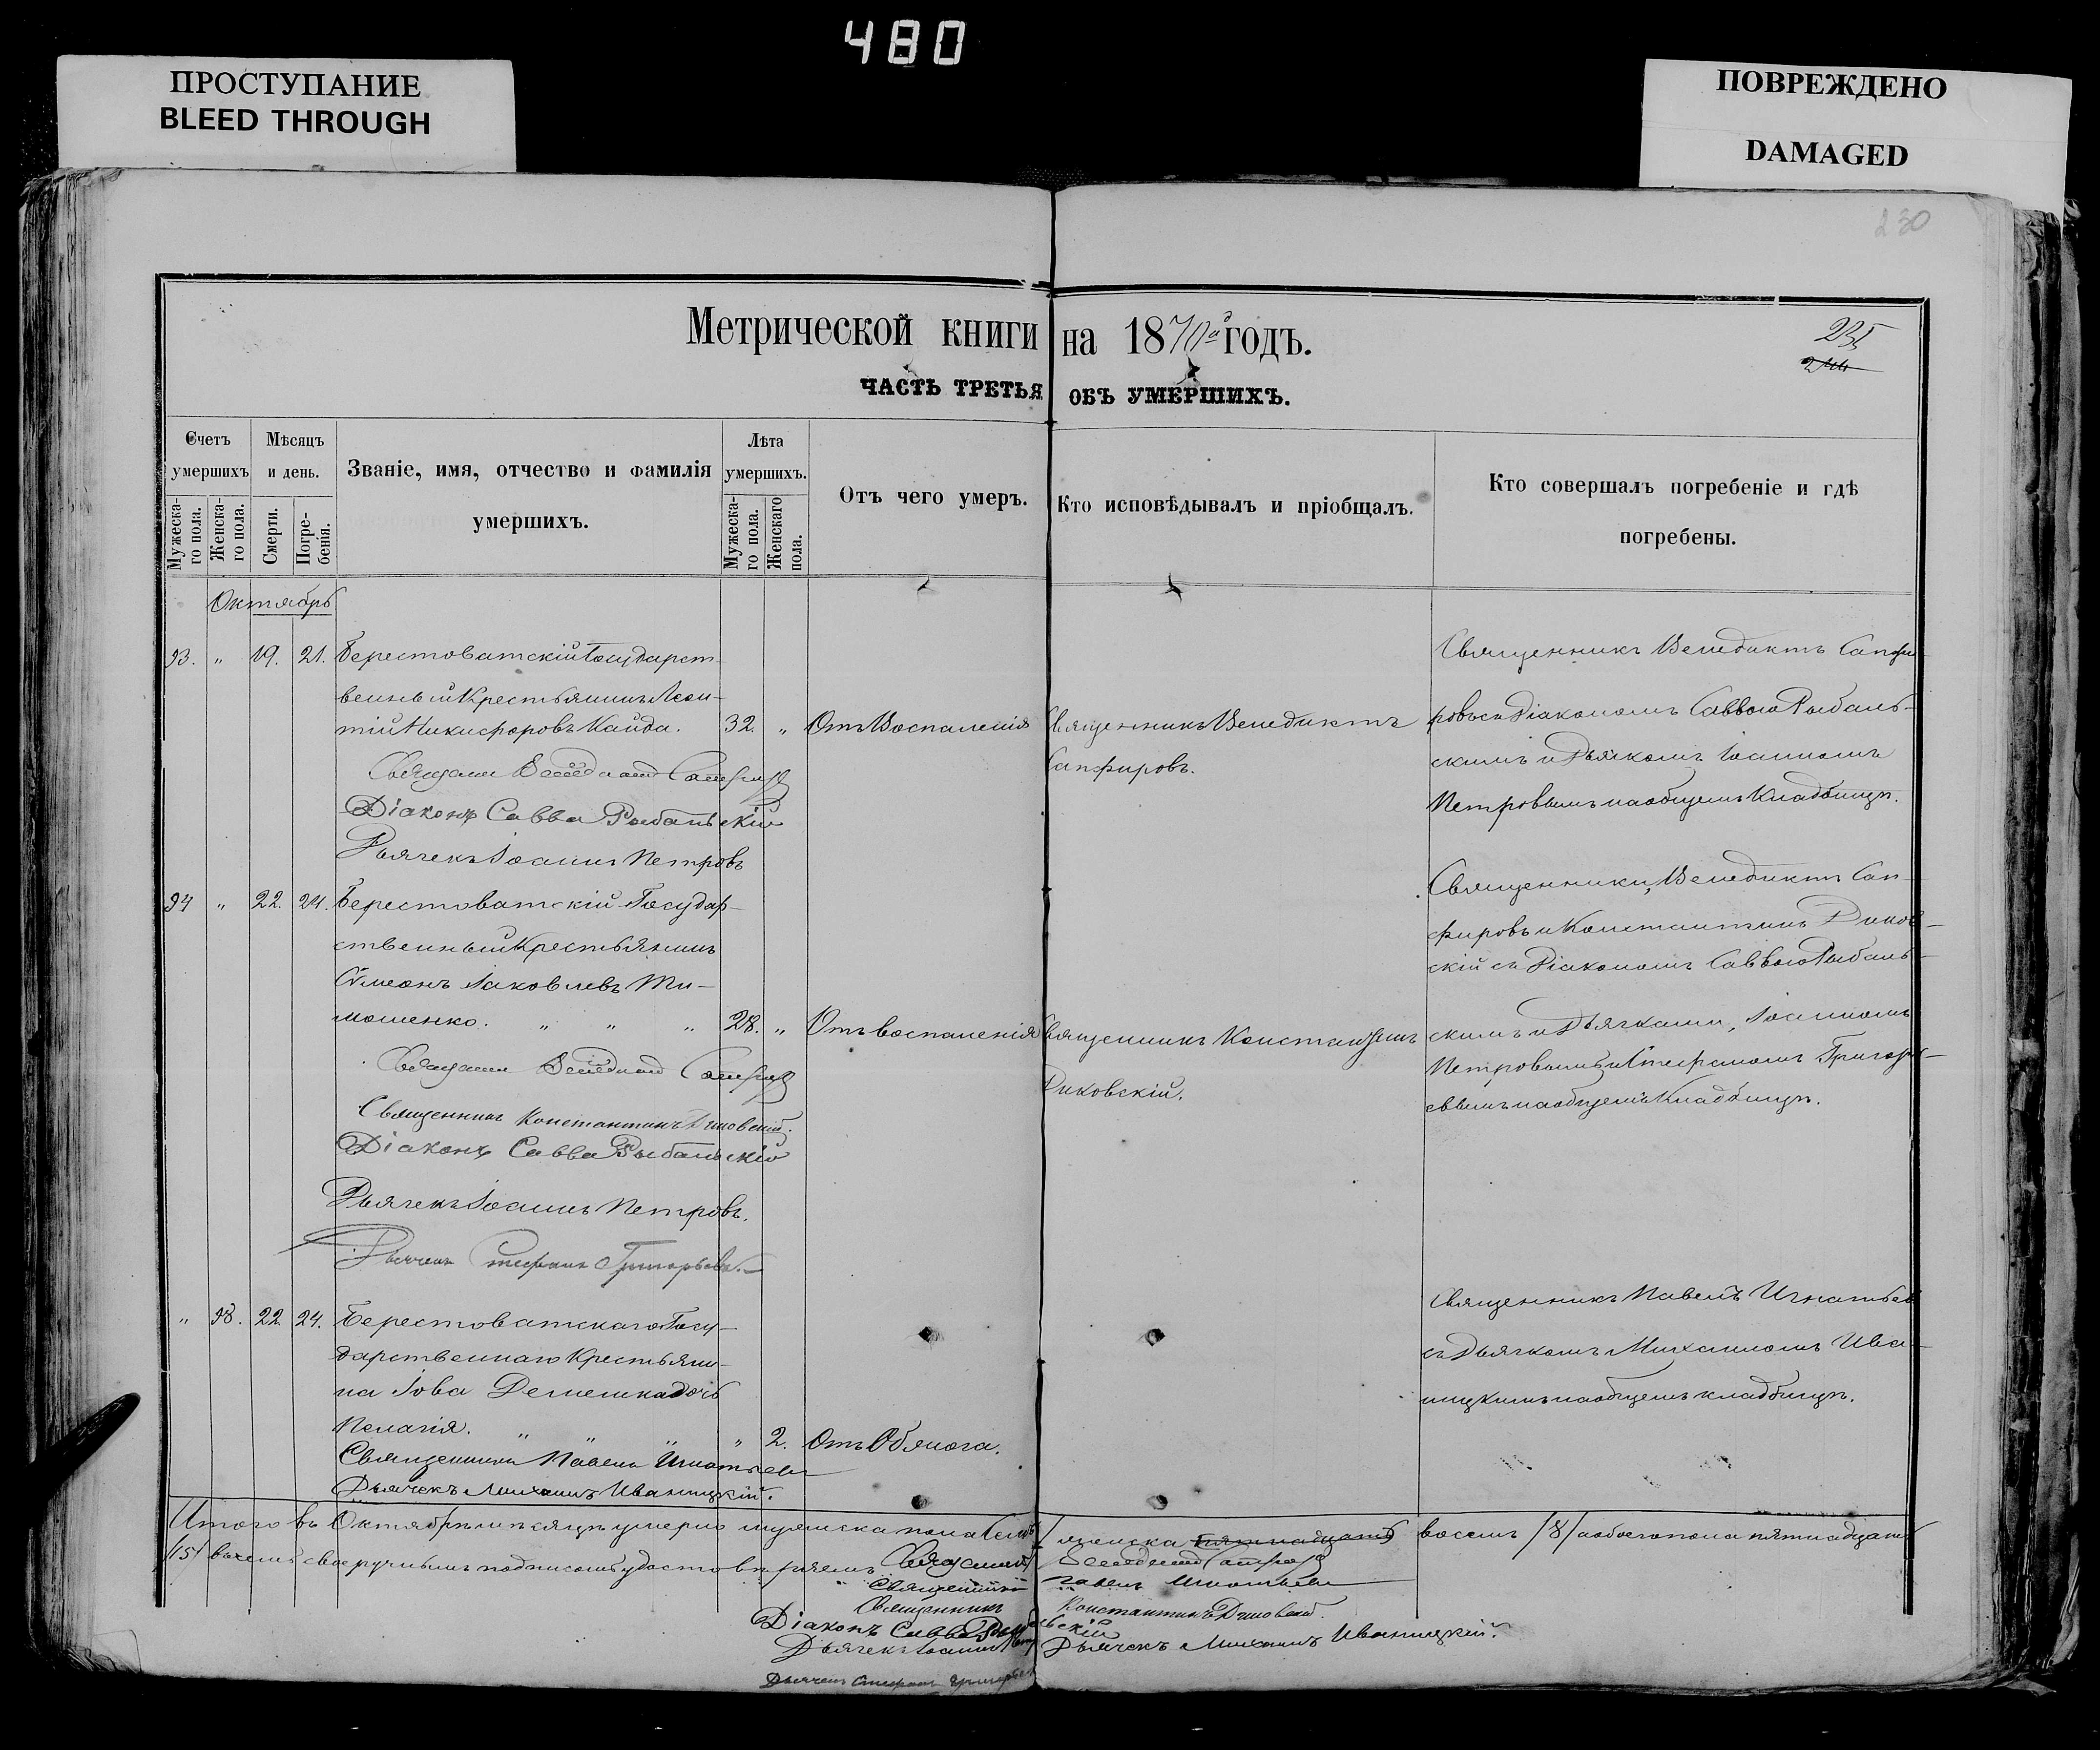 480
ПРОСТУПАНИЕ
BLEED THROUGH
ПОВРЕЖДЕНО
DAMAGED
230
Метрической книги на 1870й годъ.
235
ЧАСТЬ ТРЕТЬЯ ОБЪ УМЕРШИХЪ.
Счетъ умершихъ
Мужеска-го пола.
Женска-го пола.
Мѣсяцъ и день.
Смерти.
Погре-бенія.
Званіе, имя, отчество и фамилія
умершихъ.
Лѣта умершихъ.
Мужеска-го пола.
Женскаго пола.
Отъ чего умеръ.
Кто исповѣдывалъ и пріобщалъ.
Кто совершалъ погребеніе и гдѣ
погребены.
Октябрь
93. " 19. 21. Берестоватскій Государст-
венный Крестьянинъ Леон-
тій Никифоровъ Кайда. 32. " Отъ Воспаленія
Священникъ Венедиктъ
Сапфировъ.
Священникъ Венедиктъ Сапфи-
ровъ съ Діакономъ Саввою Рыбаль-
скимъ и Дьякомъ Іоанномъ
Петровымъ на общемъ Кладбищѣ.
Священникъ Венедиктъ Сапфировъ
Діаконъ Савва Рыбальскій
Дьячекъ Іоаннъ Петровъ
94 " 22. 24. Берестоватскій Государ-
ственный Крестьянинъ
Сѵмеонъ Іаковлевъ Ти-
мошенко. " " " 28. " Отъ воспаленія
Священникъ Константинъ
Диковскій.
Священники, Венедиктъ Сап-
фировъ и Константинъ Диков-
скій съ Діакономъ Саввою Рыбаль-
скимъ и Дьячками, Іоанномъ
Петровымъ и Стефаномъ Григорь-
евымъ на общемъ Кладбищѣ.
Священникъ Венедиктъ Сапфировъ
Священникъ Константинъ Диковскій.
Діаконъ Савва Рыбальскій
Дьячекъ Іоаннъ Петровъ.
Дьячекъ Стефанъ Григорьевъ.
" 98. 22. 24. Берестоватскаго Госу-
дарственнаго Крестьяни-
на Іова Демешка дочь
Пелагія. " " " " 2. Отъ Обянога.
Священникъ Павелъ Игнатьев
съ Дьячкомъ Михаиломъ Ива-
ницкимъ на общемъ кладбищѣ.
Священникъ Павелъ Игнатьевъ
Дьячекъ Михаилъ Иваницкій.
Итого въ Октябрѣ мѣсяцѣ умерло мужеска пола семь женска пятнадцать восемь /8/ а обоего пола пятнадцать
/15/ въ чемъ своеручнымъ подписомъ удостовѣряемъ Священникъ Венедиктъ Сапфировъ
Священникъ Павелъ Игнатьевъ
Священникъ Константинъ Диковскій.
Діаконъ Савва Рыбальскій
Дьячекъ Іоаннъ Петр Дьячекъ Михаилъ Иваницкій.
Дьячекъ Стефанъ Григорьев